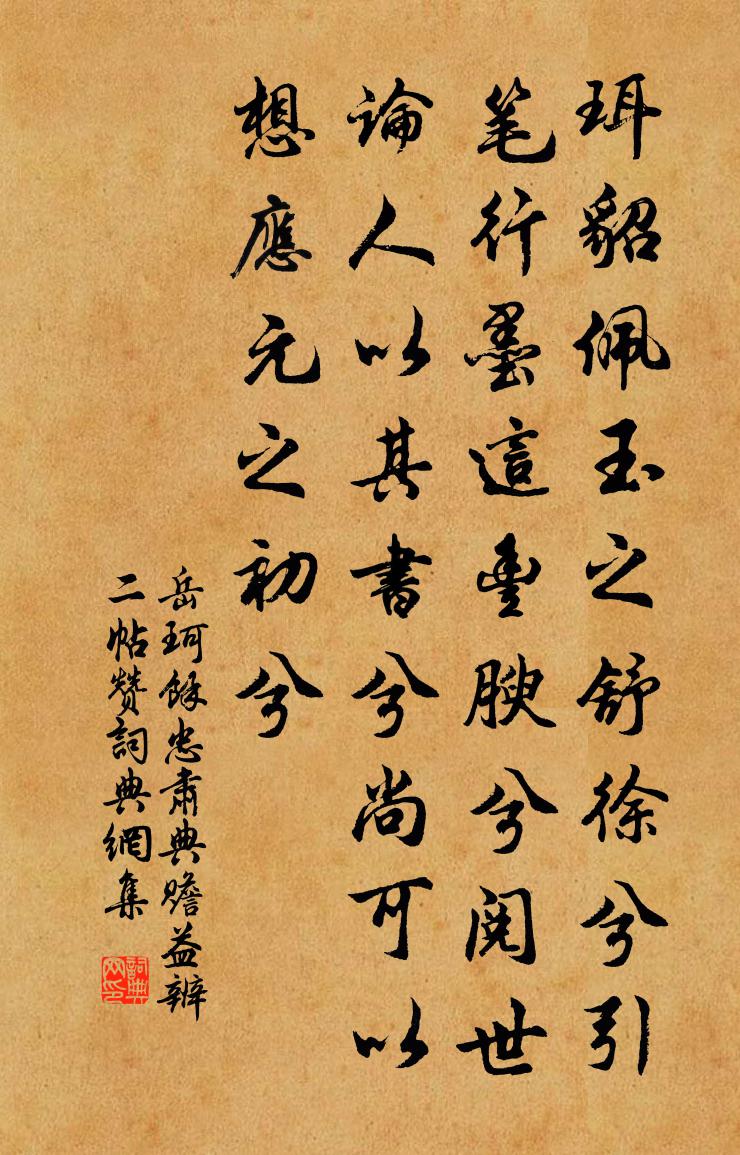 珥貂佩玉之舒徐兮引
笔行墨這重腴兮閱世
論人以其書兮尚可以
想應元之初兮
岳珂餘忠肅典贍益辨
二帖贊詞典網集
詞典网印